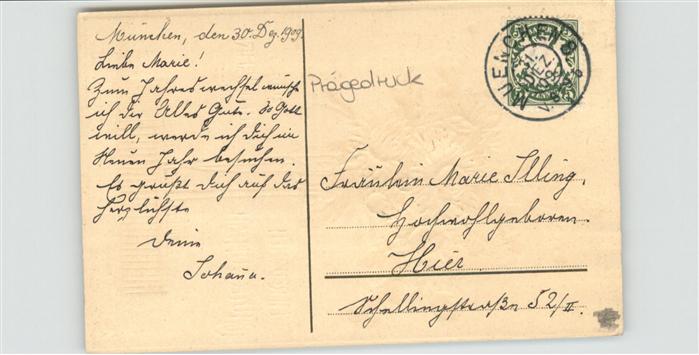 München, den 30. Dez. 1909.
Liebe Marie!
Zum Jahreswechsel wünsche
ich dir Alles Gute. So Gott
will, werde ich dich im
Neuen Jahr besuchen.
Es grüßt dich auf das
herzlichste
Deine
Johana.
Prägedruck
MUENCHEN
31. DEZ.
Fräulein Marie Illing,
Hochwohlgeboren.
Hier
Schellingstraße 52/II.